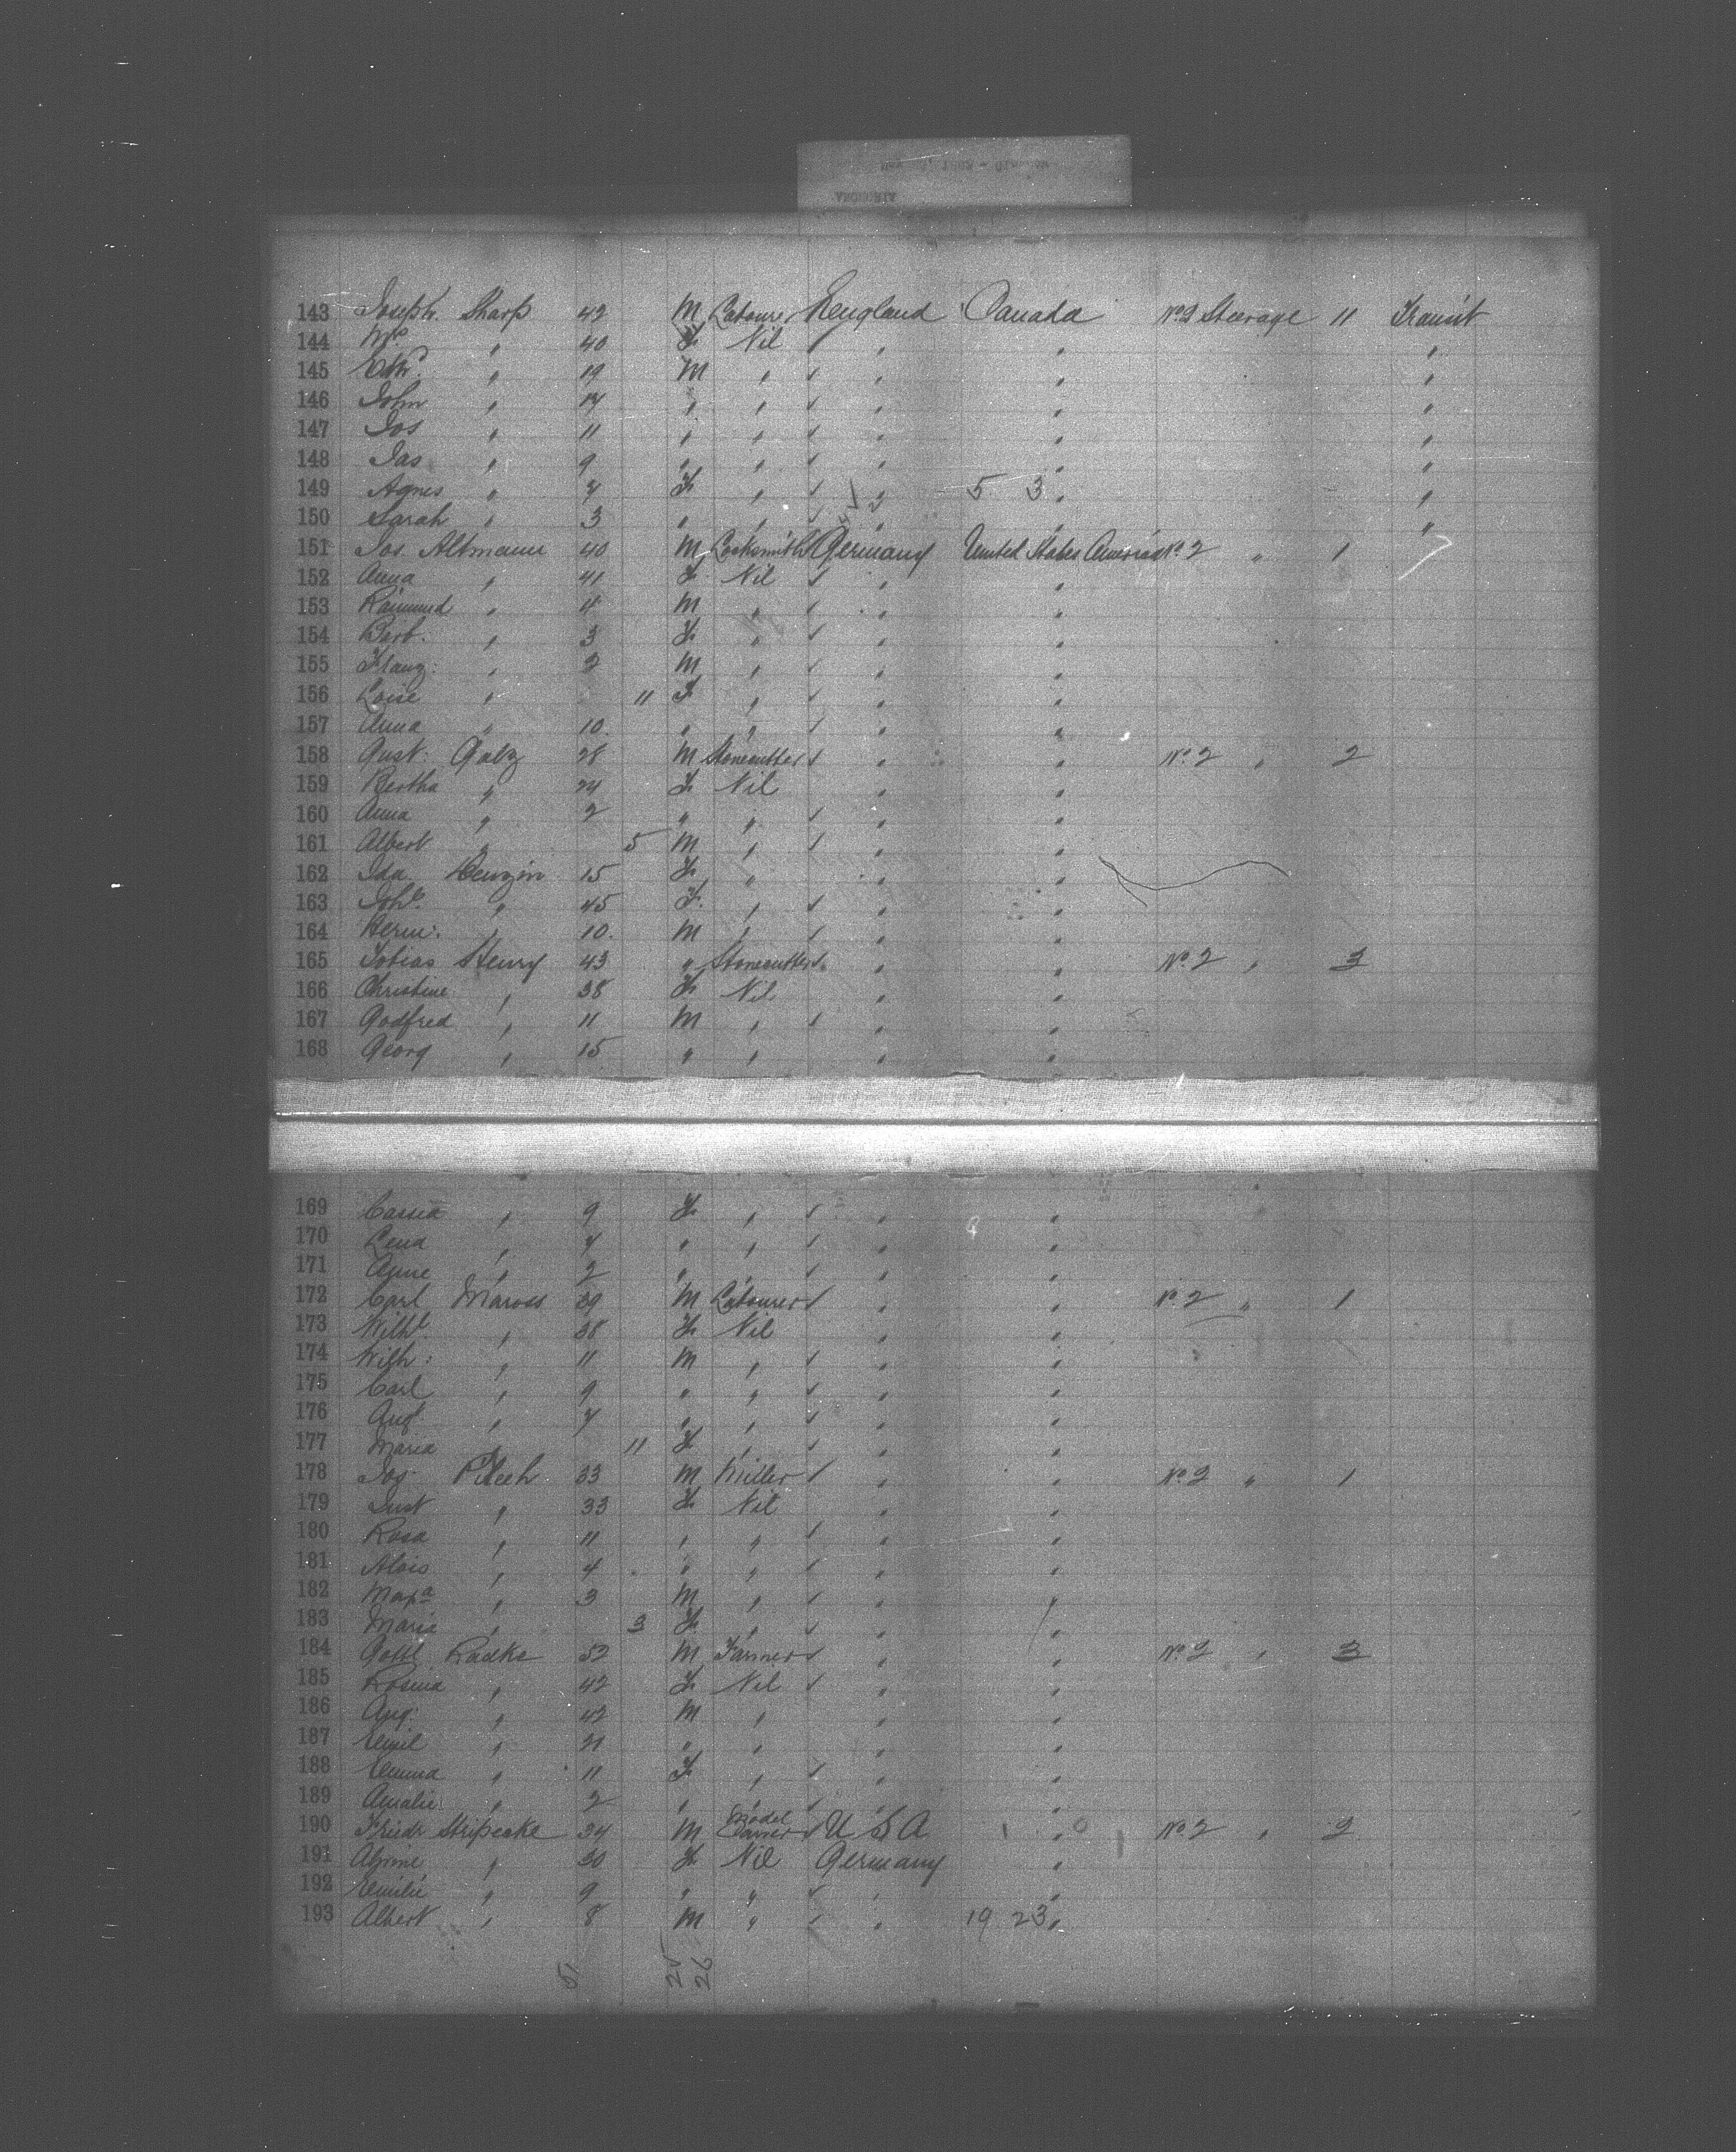 143 Joseph Sharp 42 M Labourer England Canada No 2 Steerage 11 Transit
144 Mrs " 40 F Nil " " "
145 Edwd " 19 M " " " "
146 John " 14 " " " " "
147 Jos " 11 " " " " "
148 Jas " 9 " " " " "
149 Agnes " 7 F " " 5 3 " "
150 Sarah " 3 " " " " "
151 Jos Altmann 40 M Locksmith Germany United States America No 2 " 1
152 Anna " 41 F Nil " "
153 Raimund " 4 M " " "
154 Barb. " 3 F " " "
155 Franz: " 2 M " " "
156 Loise " 11 F " " "
157 Anna " 10. " " " "
158 Gust: Galz 28 M Stonecutter " " No 2 " 2
159 Bertha " 24 F Nil " "
160 Anna " 2 " " " "
161 Albert " 5 M " " "
162 Ida 15 F " " "
163 Johe " 45 F. " " "
164 Herm: " 10. M " " "
165 Tobias Henry 43 " Stonecutter " " No 2 " 3
166 Christine " 38 F Nil " "
167 Godfred " 11 M " " "
168 Georg " 15 " " " "
169 " 9 F " " "
170 Lena " 7 " " " "
171 " 2 " " " "
172 Carl 39 M Labourer " " No 2 " 1
173 Wilhe " 38 F Nil " "
174 Wilh: " 11 M " " "
175 Carl " 9 " " " "
176 Augt " 7 " " " "
177 Maria " 11 F " " "
178 Jos 33 M Miller " " No 2 " 1
179 " 33 F Nil " "
180 Rosa " 11 " " " "
181 Alois " 4 " " " "
182 " 3 M " " "
183 Maria " 3 F " " "
184 Gottl Radke 52 M Farmer " " No 2 " 3
185 Rosina " 42 F Nil " "
186 Aug: " 42 M " " "
187 Emil " 21 " " " "
188 Emma " 11 F " " "
189 Amalie " 2 " " " "
190 Friedr Stripecke 34 M Model Carver U S A " No 2 " 2
191 " 30 F Nil Germany "
192 Emilie " 9 " " " "
193 Albert " 8 M " " 19 23 "
51 25 26